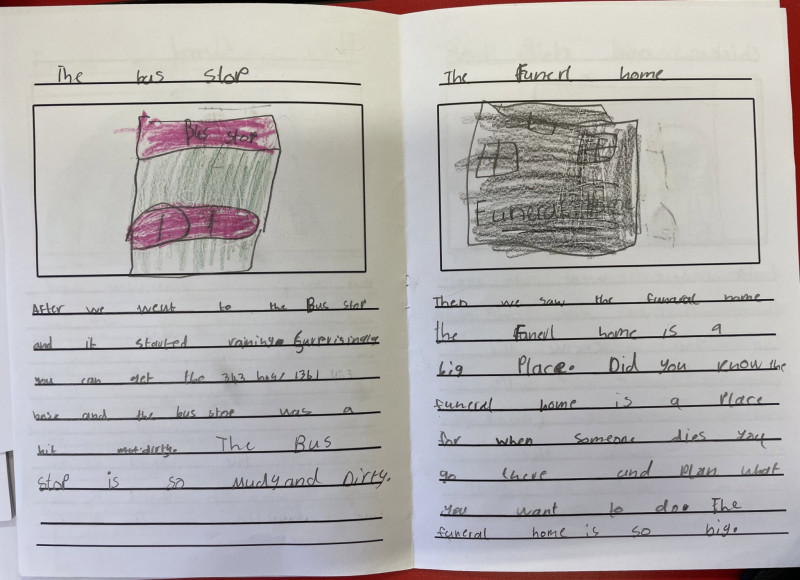 The bus stop
Bus stop
After we went to the Bus stop
and it started raining. Surprisingly
you can get the 343 bus/ 136/
base and the bus stop was a
bit
The Bus
stop is so mudy and Dirty.
The Funerl home
Funeral
Then we saw the funeral home
the Funerl home is a
big Place. Did you know the
funeral home is a Place
for when someone dies you
go there and plan what
you want to do. The
funeral home is so big.